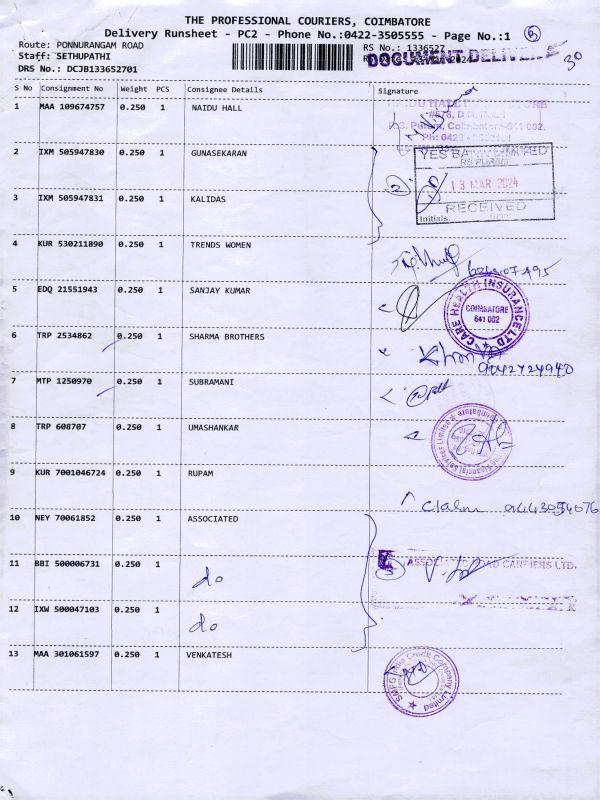 THE PROFESSIONAL COURIERS, COIMBATORE
Delivery Runsheet - PC2 - Phone No.:0422-3505555 - Page No.:1
Route: PONNURANGAM ROAD RS No.: 1336527
Staff: SETHUPATHI
DOCUMENT DELIVER
30
DRS No.: DCJB133652701
S No Consignment No Weight PCS Consignee Details Signature
1 MAA 109674757 0.250 1 NAIDU HALL
2 IXM 505947830 0.250 1 GUNASEKARAN
YES BANK LIMITED
RS PURAM
13 MAR 2024
RECEIVED
Initials:
3 IXM 505947831 0.250 1 KALIDAS
2
4 KUR 530211890 0.250 1 TRENDS WOMEN
5 EDQ 21551943 0.250 1 SANJAY KUMAR
CARE HEALTH INSURANCE LTD.
COIMBATORE
641 002
6 TRP 2534862 0.250 1 SHARMA BROTHERS
9042724940
7 MTP 1250970 0.250 1 SUBRAMANI
8 TRP 608707 0.250 1 UMASHANKAR
9 KUR 7001046724 0.250 1 RUPAM
10 NEY 70061852 0.250 1 ASSOCIATED
11 BBI 500006731 0.250 1 do
ASSOCIATED ROAD CARRIERS LTD.
12 IXW 500047103 0.250 1 do
13 MAA 301061597 0.250 1 VENKATESH
SMFG India Credit Company Limited